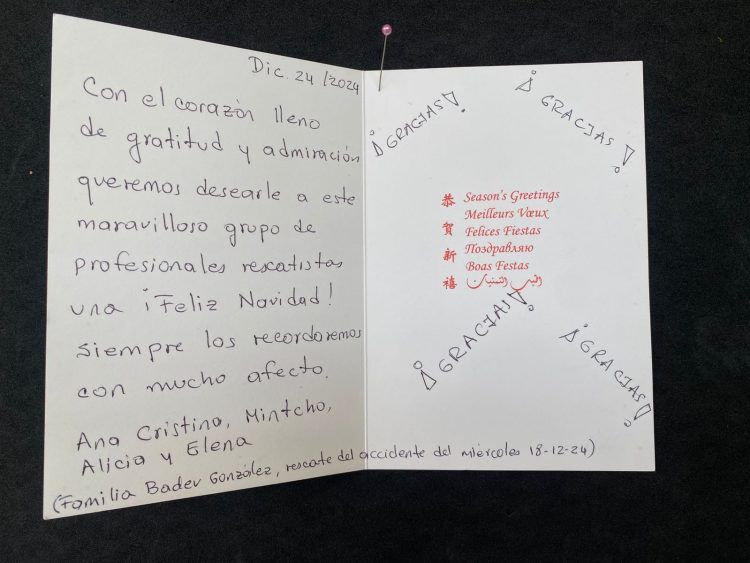 Dic. 24/2024
Con el corazón lleno
de gratitud y admiración
queremos desearle a este
maravilloso grupo de
profesionales rescatistas
una ¡Feliz Navidad!
Siempre los recordaremos
con mucho afecto.
Ana Cristina, Mintcho,
Alicia y Elena
(Familia Badev González, rescate del accidente del miércoles 18-12-24)
¡GRACIAS!
¡GRACIAS!
恭賀新禧
Season's Greetings
Meilleurs Vœux
Felices Fiestas
Поздравляю
Boas Festas
¡GRACIAS!
¡GRACIAS!